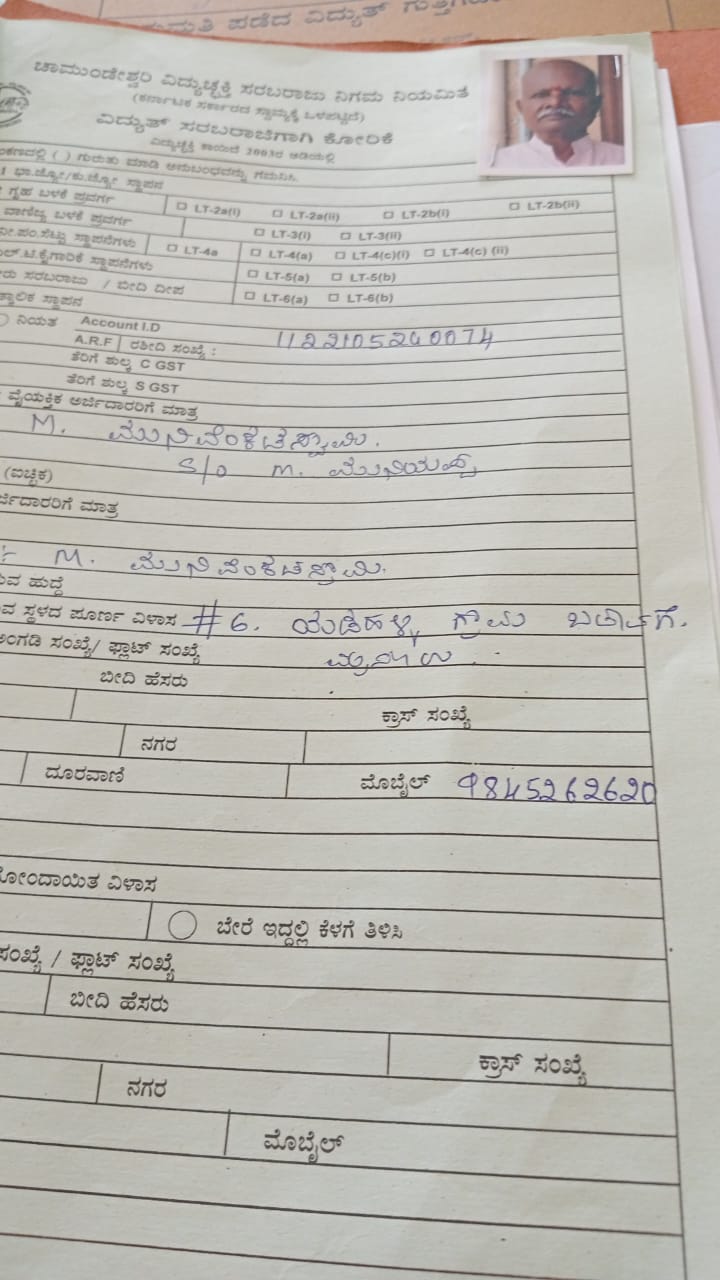 ಪಡೆದ ವಿದ್ಯುತ್
ಚಾಮುಂಡೇಶ್ವರಿ ವಿದ್ಯುಚ್ಛಕ್ತಿ ಸರಬರಾಜು ನಿಗಮ ನಿಯಮಿತ
(ಕರ್ನಾಟಕ ಸರ್ಕಾರದ ಸ್ವಾಮ್ಯಕ್ಕೆ ಒಳಪಟ್ಟಿದೆ)
ವಿದ್ಯುತ್ ಸರಬರಾಜಿಗಾಗಿ ಕೋರಿಕೆ
ವಿದ್ಯುಚ್ಛಕ್ತಿ ಕಾಯಿದೆ 2003ರ ಅಡಿಯಲ್ಲಿ
( ) ಗುರುತು ಮಾಡಿ ಅನುಬಂಧವನ್ನು ಗಮನಿಸಿ
ಭಾ.ಜ್ಯೋ/ಕು.ಜ್ಯೋ ಸ್ಥಾಪನ
ಗೃಹ ಬಳಕೆ ಪ್ರವರ್ಗ □ LT-2a(i) □ LT-2a(ii) □ LT-2b(i) □ LT-2b(ii)
ವಾಣಿಜ್ಯ ಬಳಕೆ ಪ್ರವರ್ಗ □ LT-3(i) □ LT-3(ii)
ನೀ.ಪಂ.ಸೆಟ್ಟು ಸ್ಥಾಪನೆಗಳು □ LT-4a □ LT-4(a) □ LT-4(c)(i) □ LT-4(c) (ii)
ಎಲ್.ಟಿ.ಕೈಗಾರಿಕೆ ಸ್ಥಾಪನೆಗಳು □ LT-5(a) □ LT-5(b)
ಸರಬರಾಜು / ಬೀದಿ ದೀಪ □ LT-6(a) □ LT-6(b)
ಸ್ಥಾಪನ
ನಿಯತ Account I.D
A.R.F ರಶೀದಿ ಸಂಖ್ಯೆ : 1122105240074
ತೆರಿಗೆ ಶುಲ್ಕ C GST
ತೆರಿಗೆ ಶುಲ್ಕ S GST
ವೈಯಕ್ತಿಕ ಅರ್ಜಿದಾರರಿಗೆ ಮಾತ್ರ
M. ಮುನಿವೆಂಕಟಸ್ವಾಮಿ.
S/o M. ಮುನಿಯಪ್ಪ
(ಐಚ್ಛಿಕ)
ಅರ್ಜಿದಾರರಿಗೆ ಮಾತ್ರ
M. ಮುನಿವೆಂಕಟಸ್ವಾಮಿ.
ಹುದ್ದೆ
ಸ್ಥಳದ ಪೂರ್ಣ ವಿಳಾಸ #6. ಯಡಹಳ್ಳಿ ಗ್ರಾಮ
ಅಂಗಡಿ ಸಂಖ್ಯೆ/ ಫ್ಲಾಟ್ ಸಂಖ್ಯೆ
ಬೀದಿ ಹೆಸರು
ಕ್ರಾಸ್ ಸಂಖ್ಯೆ
ನಗರ
ದೂರವಾಣಿ ಮೊಬೈಲ್ 9845262620
ನೋಂದಾಯಿತ ವಿಳಾಸ
ಬೇರೆ ಇದ್ದಲ್ಲಿ ಕೆಳಗೆ ತಿಳಿಸಿ
ಸಂಖ್ಯೆ / ಫ್ಲಾಟ್ ಸಂಖ್ಯೆ
ಬೀದಿ ಹೆಸರು
ಕ್ರಾಸ್ ಸಂಖ್ಯೆ
ನಗರ
ಮೊಬೈಲ್